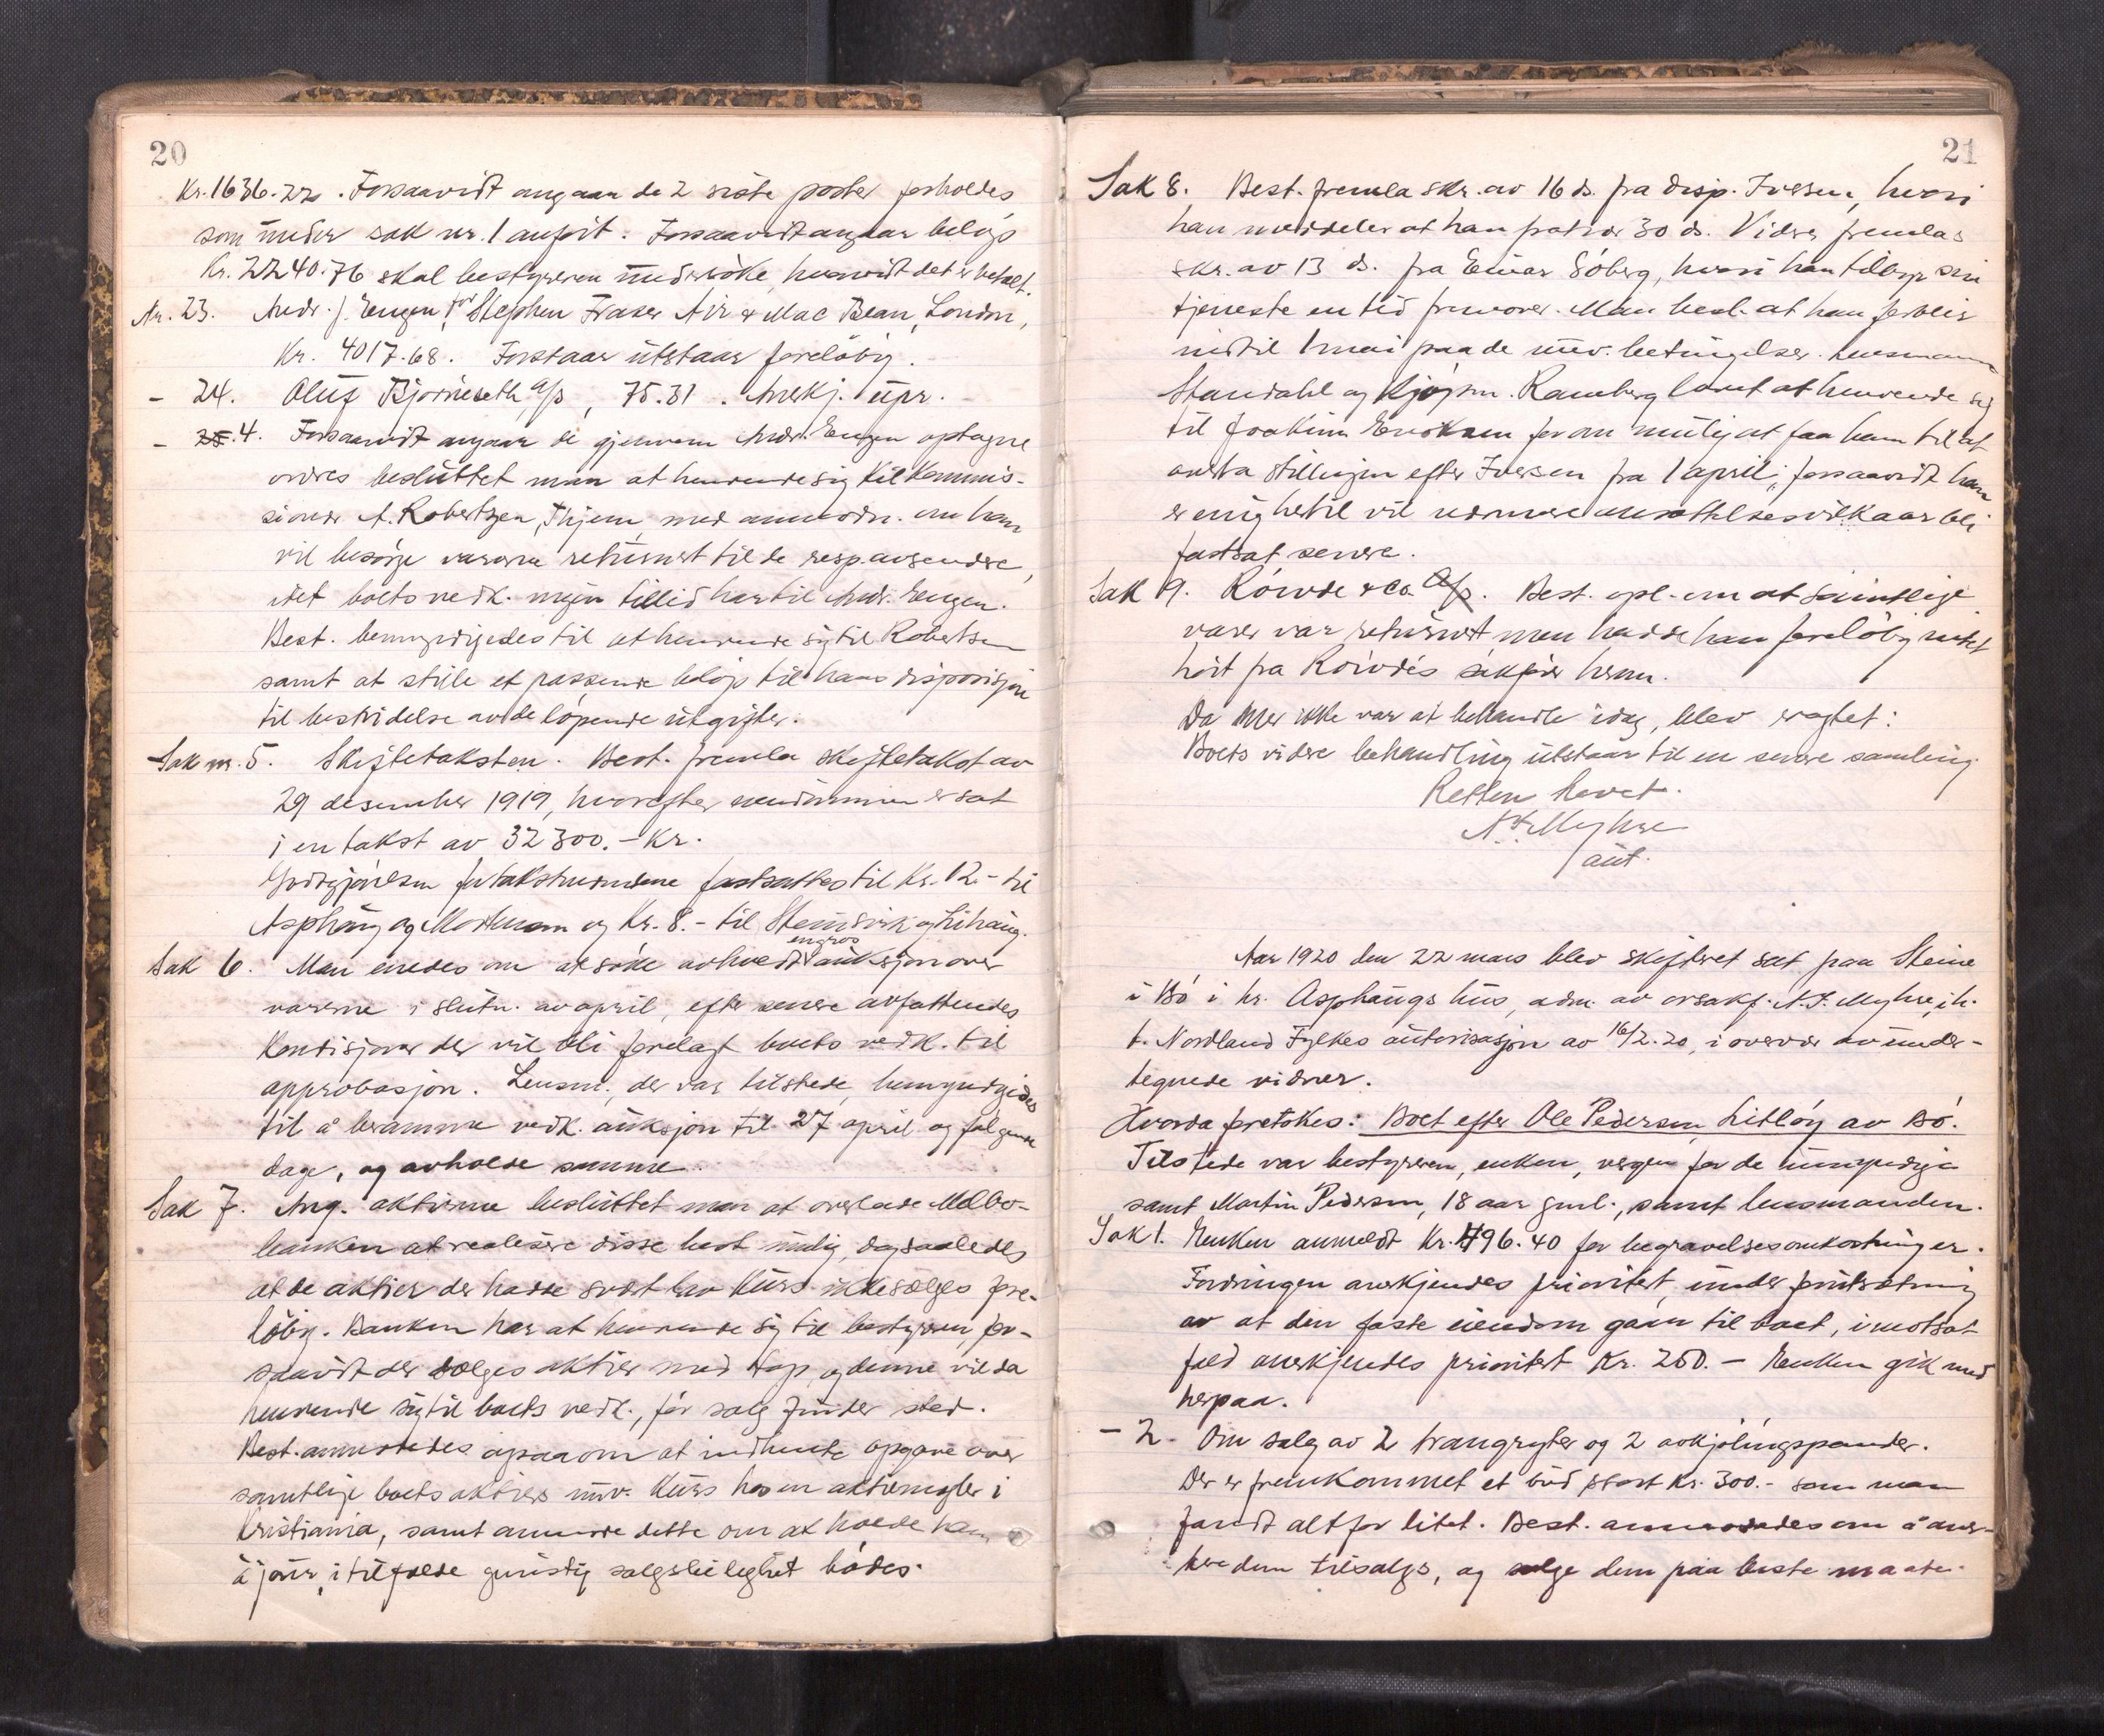 20
Kr. 1636.22. Forsaavidt angaar de 2 siste poster forholdes
som under sak nr. 1 anført. Forsaavidt angaar beløp
Kr. 2240.76 skal bestyreren undersøke, hvorvidt det er betalt.
Nr. 23. Andr. J. Engen for Stephen Fraser Air & Mac Bean, London,
Kr. 4017.68. Forstaar utstaar foreløbig.
- 24. Oluf Bjørneseth A/S, 75.31. Anerkj. upr.
- 4. Forsaavidt angaar de gjennem Andr. Engen optagne
ordres besluttet man at henvende sig til Kommis-
sionær A. Robertsen, Thjem, med anmodn. om han
vil besørge varerne returnert til de resp. avsendere,
idet boets vedk. ingen tillid har til Andr. Engen.
Best. bemyndigedes til at henvende sig til Robertsen
samt at stille et passende beløp til hans disposisjon
til bestridelse av de løpende utgifter.
Sak nr. 5. Skiftetaksten. Best. fremla skiftetakst av
29 desember 1919, hvorefter eiendommen er sat
i en takst av 32300.- Kr.
Godtgjørelsen for takstmændene fastsattes til Kr. 12.- til
Asphaug og Mortensen og Kr. 8.- til Steinsvik og Lihaug.
engros
Sak 6. Man enedes om at søke avholdt auksjon over
varerne i slutn. av april, efter senere avfattendes
Kondisjoner der vil bli forelagt boets vedk. til
approbasjon. Lensm., der var tilstede, bemyndigedes
til å beramme vedk. auksjon til 27 april og følgende
dage, og avholde samme.
Sak 7. Ang. aktierne besluttet man at overlade Melbo-
banken at realisere disse best mulig, dog saaledes
at de aktier der hadde svært lav kurs ikke sælges fore-
løbig. Banken har at henvende sig til bestyreren, for-
saavidt der sælges aktier med tap, og denne vil da
henvende sig til boets vedk., før salg finder sted.
Best. anmodedes ogsaa om at indhente opgave over
samtlige boets aktiers nuv. kurs hos en aktiemegler i
Kristiania, samt anmode dette om at holde
øie, i tilfælde gunstig salgsleilighet bødes.
21
Sak 8. Best. fremla skr. av 16 ds. fra disp. Iversen, hvori
han meddeler at han fratrær 30 ds. Videre fremlas
skr. av 13 ds. fra Einar Søberg, hvori han tilbyr sin
tjeneste en tid fremover. Man besl. at han forblir
indtil 1 mai paa de nuv. betingelser. Lensmann
Standahl og kjøpm. Ramberg lovet at henvende sig
til Joakim Eriksen for om mulig at faa ham til at
overta stillingen efter Iversen fra 1 april; forsaavidt han
er enig hertil vil nærmere ansættelsesvilkaar bli
fastsat senere.
Sak 9. Røivde & Co. A/S. Best. opl. om at samtlige
varer var returnert men hadde han foreløbig intet
hørt fra Røivdes sakfører herom.
Da mer ikke var at behandle idag, blev vedtat:
Boets videre behandling utstaar til en senere samling.
Retten hevet.
N. J. Myhre
aut.
Aar 1920 den 22 mars blev skifteret sat paa Steine
i Bø i hr. Asphaugs hus, adm. av orsakf. N. J. Myhre, ih.
t. Nordland Fylkes autorisasjon av 16/2.20, i overvær av under-
tegnede vidner.
Hvorda foretokes: Boet efter Ole Pedersen, Litløy av Bø.
Tilstede var bestyreren, enken, vergen for de umyndige
samt Martin Pedersen, 18 aar gml., samt lensmanden.
Sak 1. Enken anmeldt Kr. 496.40 for begravelsesomkostninger.
Fordringen anerkjendes prioritet, under forutsætning
av at den faste eiendom gaar til boet, i motsat
fald anerkjendes prioritet Kr. 200.- Enken gik med
herpaa.
- 2. Om salg av 2 trangryter og 2 avkjølingspander.
Der er fremkommet et bud stort Kr. 300.- som man
fandt altfor litet. Best. anmodedes om å aver-
tere dem tilsalgs, og selge dem paa beste maate.